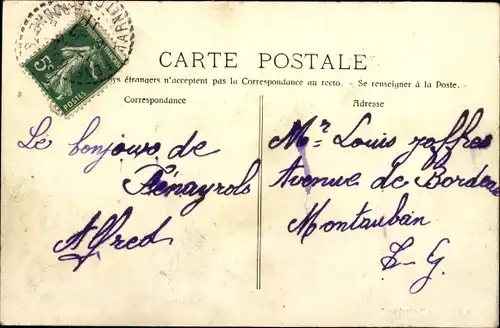 5c
POSTES
CARTE POSTALE
ys étrangers n'acceptent pas la Correspondance au recto. - Se renseigner à la Poste.
Correspondance
Adresse
Le bonjour de
Pénayrols
Alfred
Mr Louis Joffres
Avenue de Bordeau
Montauban
T-G.